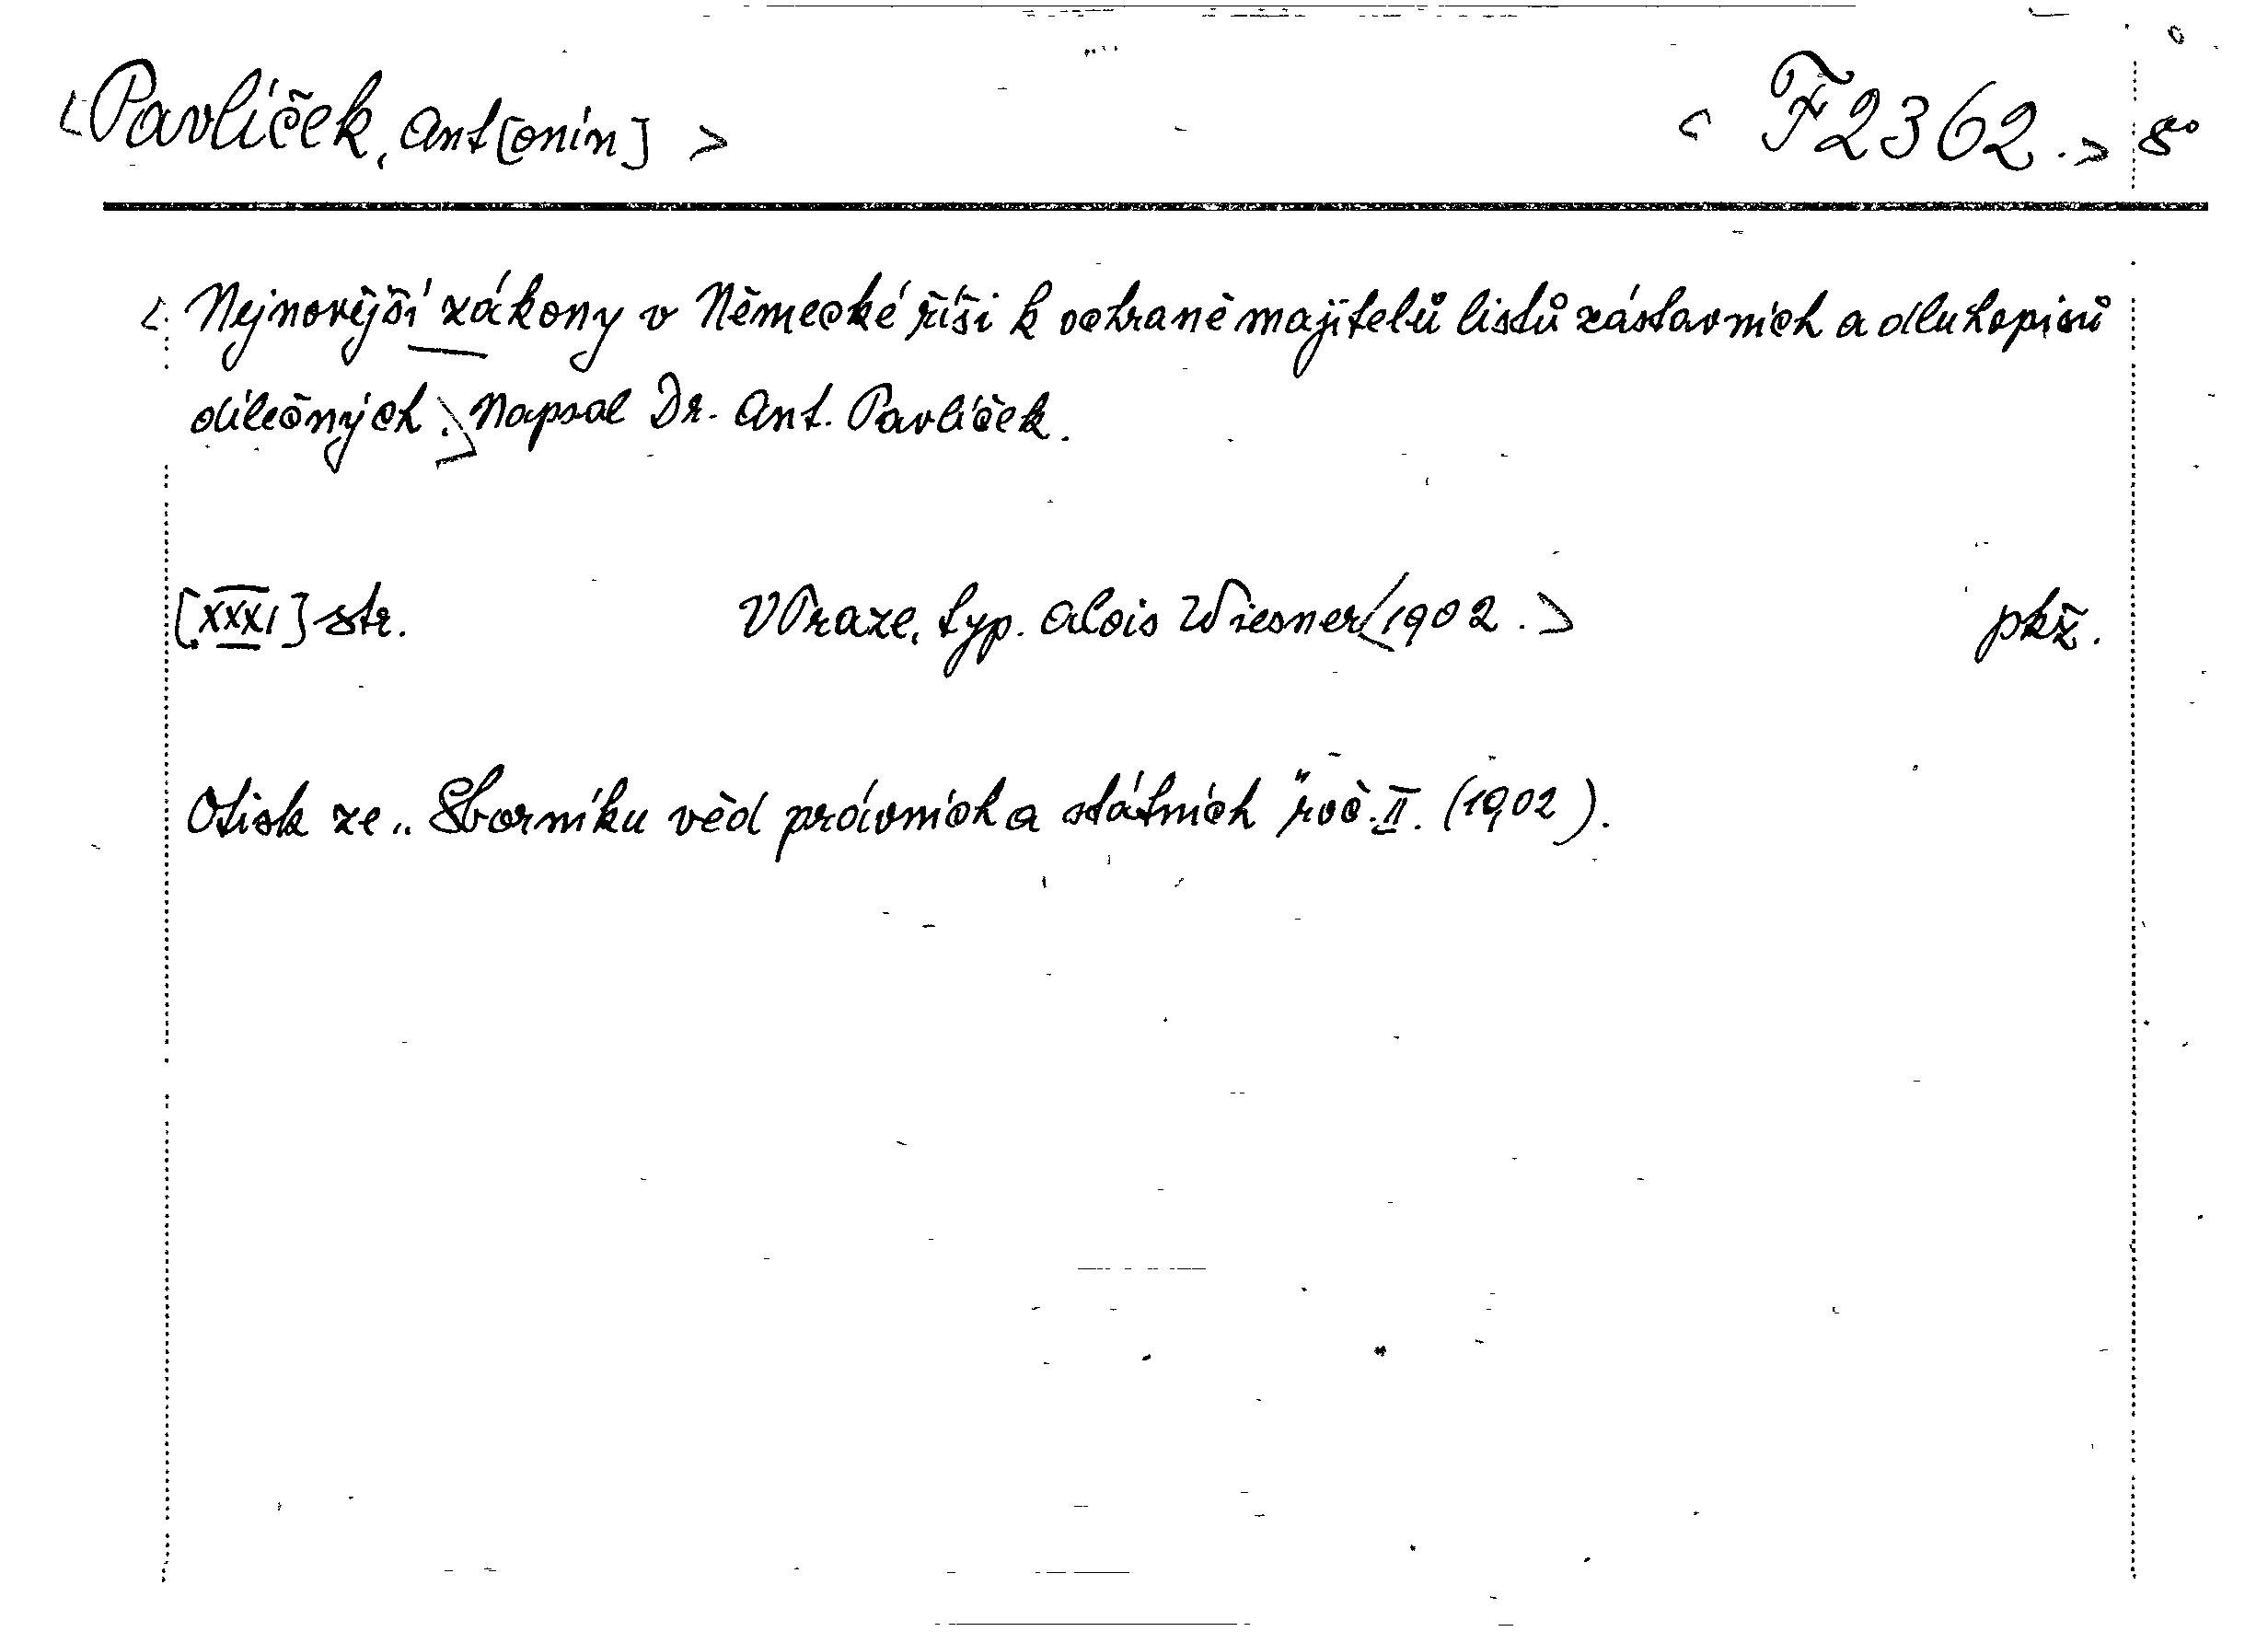 <Pavlíček, Ant[onín]> <F 2362.> 8°
<Nejnovější zákony v Německé říši k ochraně majitelů listů zástavních a dluhopisů
dílečných.> Napsal Dr. Ant. Pavlíček.
[XXXI] str. V Praze, typ. Alois Wiesner <1902.> pkž.
Otisk ze „Sborníku věd právních a státních" roč. II. (1902).